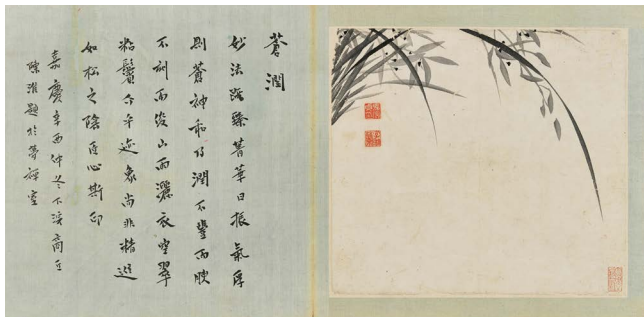 蒼潤
妙法既臻菁華日振氣厚
則蒼神和乃潤不豐而腴
不刻而俊山雨灑衣空翠
粘鬢介乎迹象尚非精進
如松之陰匠心斯印
嘉慶辛酉仲冬下浣商丘
陳淮題於夢禪室